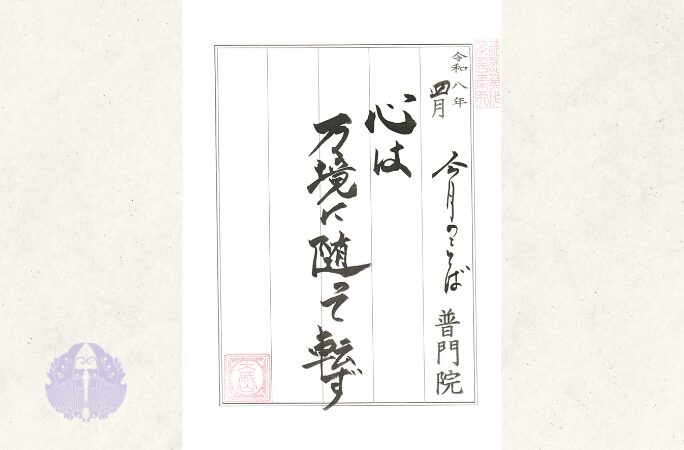 令和八年
四月
今月のことば 普門院
心は
万境に随って転ず